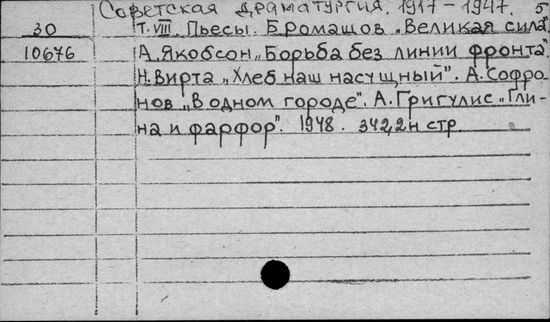 Советская драматургия. 1917-1947. 5
30 Т. VIII. Пьесы. Б Ромашов „Великая сила".
10676 А. Якобсон „Борьба без линии фронта".
Н. Вирта „Хлеб наш насущный". А. Софро-
нов „В одном городе". А. Григулис „Гли-
на и фарфор". 1948. 342,2н стр.